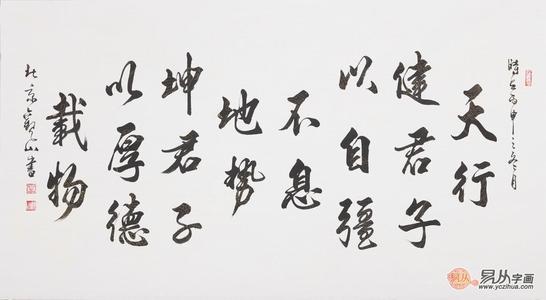 時在丙申之冬月
天行
健君子
以自彊
不息
地势
坤君子
以厚德
載物
北京觀山書
易从
易从字画
www.yczihua.com